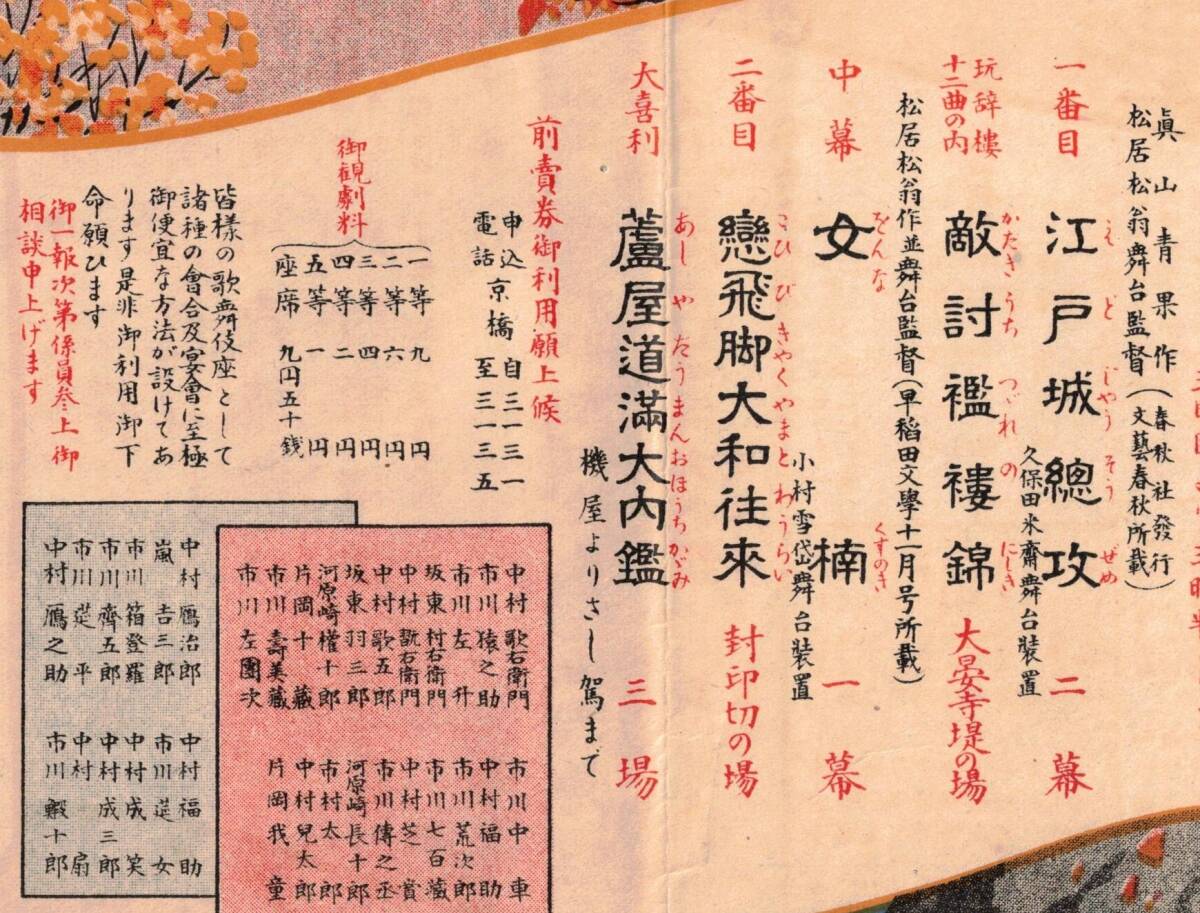 眞山青果作(春秋社發行)
松居松翁舞台監督(文藝春秋所載)
一番目 江戸城總攻 二幕
えどじやうそうぜめ
久保田米齋舞台装置
玩辞樓
十二曲の内
敵討襤褸錦 大晏寺堤の場
かたきうちつゞれのにしき
松居松翁作並舞台監督(早稲田文學十一月号所載)
中幕 女楠 一幕
をんなくすのき
小村雪岱舞台装置
二番目 戀飛脚大和往來 封印切の場
こひびきやくやまとわうらい
大喜利 蘆屋道滿大内鑑 三場
あしやだうまんおほうちかゞみ
機屋よりさし駕まで
前賣券御利用願上候
申込京橋自三一三一
電話 至三一三五
御観劇料
一等 九円
二等 六円
三等 四円
四等 二円
五等 一円
座席 九円五十銭
皆様の歌舞伎座として
諸種の會合及宴會に至極
御便宜な方法が設けてあ
ります是非御利用御下
命願ひます
御一報次第係員参上御
相談申上げます
中村歌右衛門 市川中車
市川猿之助 中村福助
市川左升 市川荒次郎
坂東村右衛門 市川七百藏
中村翫右衛門 中村芝賞
中村歌五郎 市川傳之丞
坂東羽三郎 河原崎長十郎
河原崎權十郎 市村太郎
片岡十藏 中村兒太郎
市川壽美藏 片岡我童
市川左團次
中村鴈治郎 中村福助
嵐吉三郎 市川莚女
市川箱登羅 中村成笑
市川齊五郎 中村成三郎
市川莚平 中村扇
中村鴈之助 市川蝦十郎